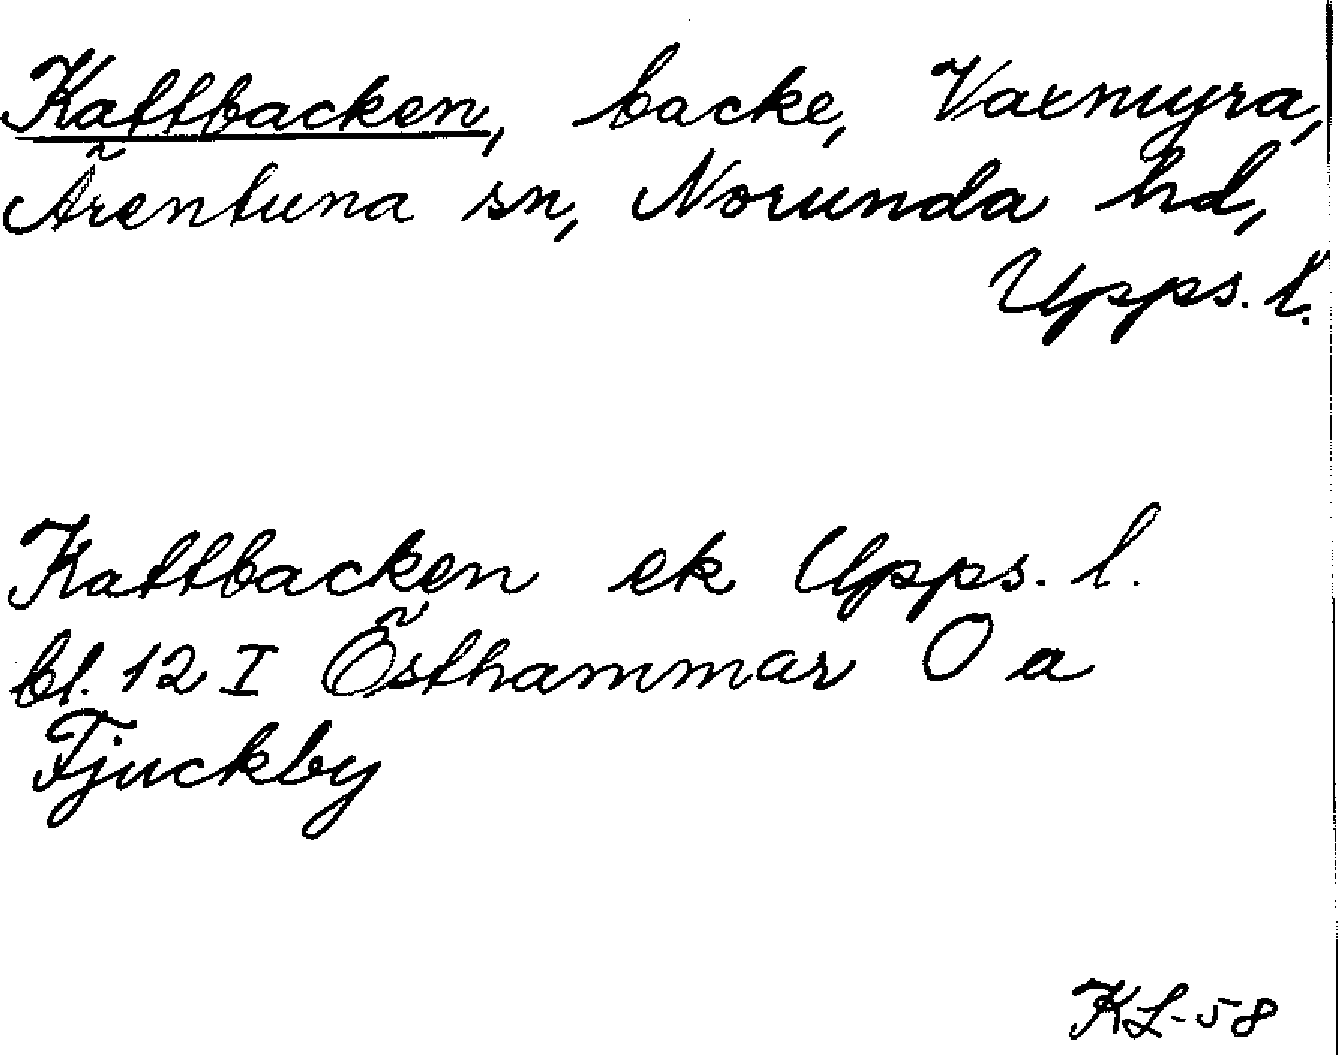 Kattbacken, backe, Vaxmyra,
Ärentuna sn, Norunda hd,
Upps. l.
Kattbacken ek Upps. l.
bl. 12 I Östhammar O a
Fjuckby
KL-58